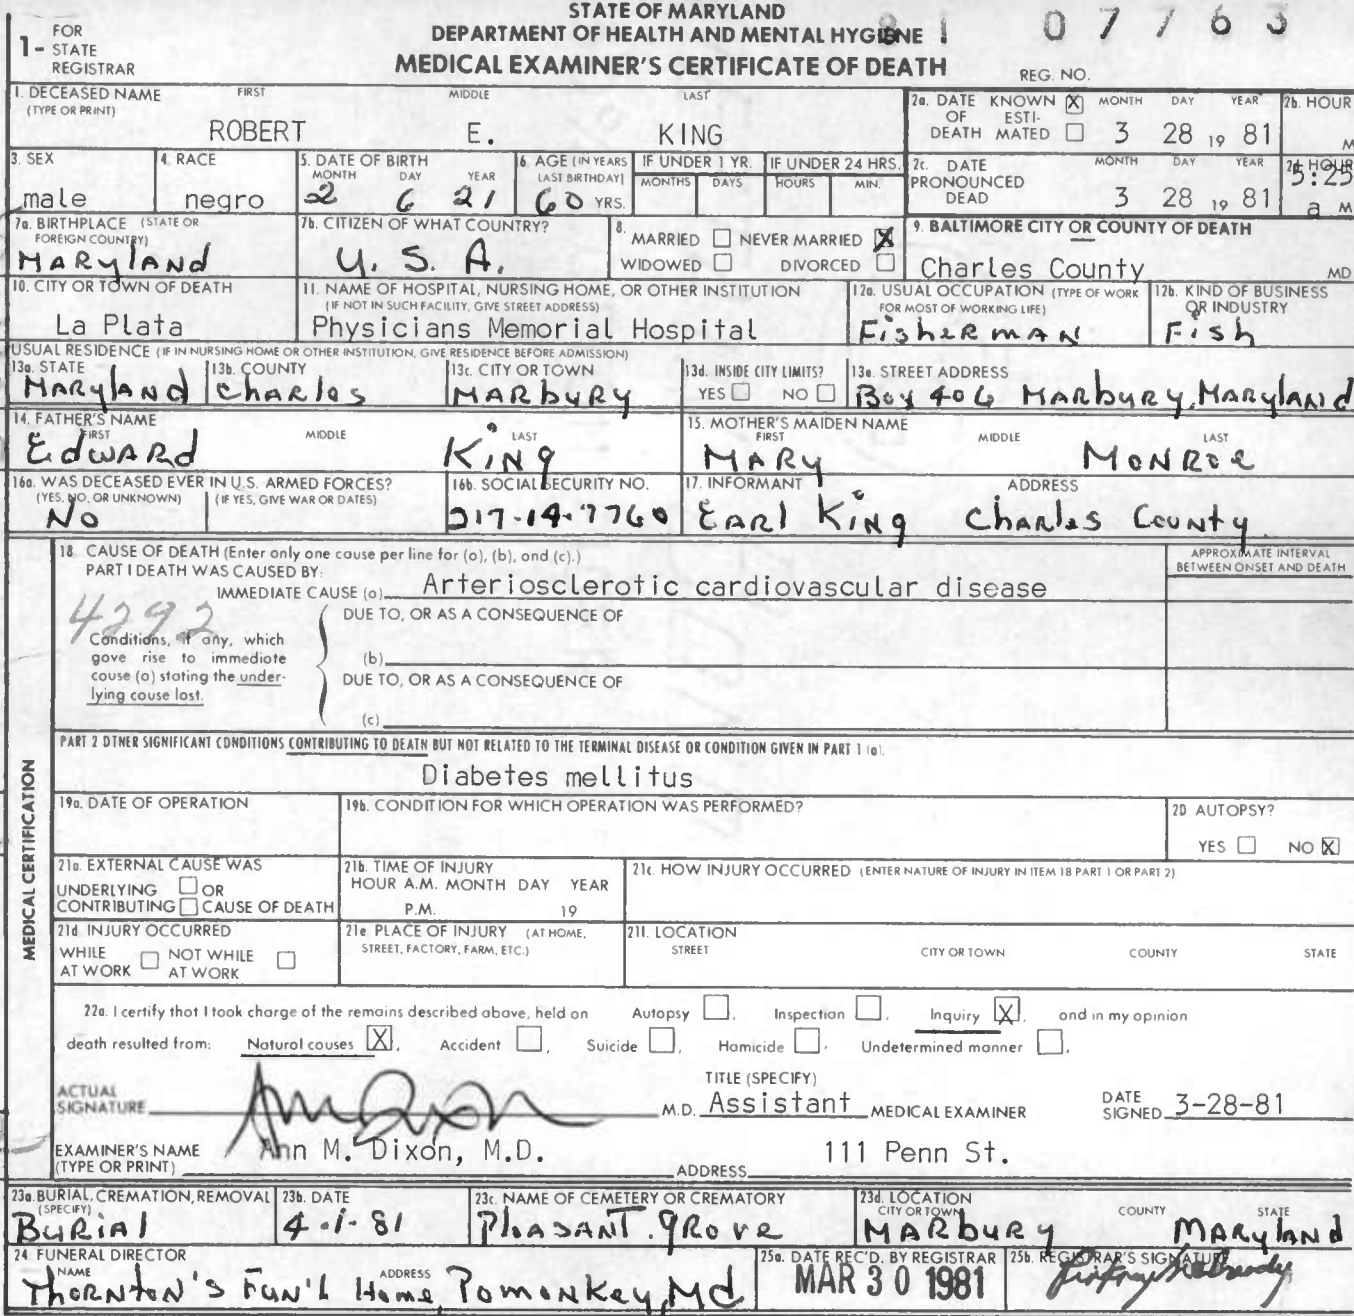 STATE OF MARYLAND
DEPARTMENT OF HEALTH AND MENTAL HYGIENE
MEDICAL EXAMINER'S CERTIFICATE OF DEATH
1- FOR STATE REGISTRAR
81 07763
REG. NO.
1. DECEASED NAME (TYPE OR PRINT) FIRST MIDDLE LAST
ROBERT E. KING
2a. DATE OF DEATH KNOWN X ESTIMATED MONTH DAY YEAR
3 28 19 81
2b. HOUR M
3. SEX
male
4. RACE
negro
5. DATE OF BIRTH MONTH DAY YEAR
2 6 21
6. AGE (IN YEARS LAST BIRTHDAY)
60 YRS.
IF UNDER 1 YR. MONTHS DAYS
IF UNDER 24 HRS. HOURS MIN.
2c. DATE PRONOUNCED DEAD MONTH DAY YEAR
3 28 19 81
2d HOUR
5:25
a M
7a. BIRTHPLACE (STATE OR FOREIGN COUNTRY)
MARYlAND
7b. CITIZEN OF WHAT COUNTRY?
U. S. A.
8. MARRIED NEVER MARRIED X
WIDOWED DIVORCED
9. BALTIMORE CITY OR COUNTY OF DEATH
Charles County MD
10. CITY OR TOWN OF DEATH
La Plata
11. NAME OF HOSPITAL, NURSING HOME, OR OTHER INSTITUTION
(IF NOT IN SUCH FACILITY, GIVE STREET ADDRESS)
Physicians Memorial Hospital
12a. USUAL OCCUPATION (TYPE OF WORK FOR MOST OF WORKING LIFE)
FishERMAN
12b. KIND OF BUSINESS OR INDUSTRY
Fish
USUAL RESIDENCE (IF IN NURSING HOME OR OTHER INSTITUTION, GIVE RESIDENCE BEFORE ADMISSION)
13a. STATE
MARylAND
13b. COUNTY
ChARles
13c. CITY OR TOWN
MARbURY
13d. INSIDE CITY LIMITS?
YES NO
13e. STREET ADDRESS
Box 406 MARbury, MARylAND
14. FATHER'S NAME FIRST MIDDLE LAST
EdwARd KiNg
15. MOTHER'S MAIDEN NAME FIRST MIDDLE LAST
MARy MONROE
16a. WAS DECEASED EVER IN U.S. ARMED FORCES?
(YES, NO, OR UNKNOWN) (IF YES, GIVE WAR OR DATES)
No
16b. SOCIAL SECURITY NO.
217-14-7760
17. INFORMANT ADDRESS
EARl KiNg ChARles County
MEDICAL CERTIFICATION
18. CAUSE OF DEATH (Enter only one cause per line for (a), (b), and (c).)
PART I DEATH WAS CAUSED BY:
APPROXIMATE INTERVAL BETWEEN ONSET AND DEATH
IMMEDIATE CAUSE (a) Arteriosclerotic cardiovascular disease
4292
DUE TO, OR AS A CONSEQUENCE OF
Conditions, if any, which gave rise to immediate cause (a) stating the underlying cause last.
(b)
DUE TO, OR AS A CONSEQUENCE OF
(c)
PART 2 OTHER SIGNIFICANT CONDITIONS CONTRIBUTING TO DEATH BUT NOT RELATED TO THE TERMINAL DISEASE OR CONDITION GIVEN IN PART 1 (a).
Diabetes mellitus
19a. DATE OF OPERATION
19b. CONDITION FOR WHICH OPERATION WAS PERFORMED?
20 AUTOPSY?
YES NO X
21a. EXTERNAL CAUSE WAS
UNDERLYING OR
CONTRIBUTING CAUSE OF DEATH
21b. TIME OF INJURY
HOUR A.M. MONTH DAY YEAR
P.M. 19
21c. HOW INJURY OCCURRED (ENTER NATURE OF INJURY IN ITEM 18 PART 1 OR PART 2)
21d INJURY OCCURRED
WHILE AT WORK NOT WHILE AT WORK
21e PLACE OF INJURY (AT HOME, STREET, FACTORY, FARM, ETC.)
21f. LOCATION
STREET CITY OR TOWN COUNTY STATE
22a. I certify that I took charge of the remains described above, held an Autopsy, Inspection, Inquiry X, and in my opinion
death resulted from: Natural causes X, Accident, Suicide, Homicide, Undetermined manner,
ACTUAL SIGNATURE Ann Dixon M.D.
TITLE (SPECIFY)
Assistant MEDICAL EXAMINER
DATE SIGNED 3-28-81
EXAMINER'S NAME (TYPE OR PRINT) Ann M. Dixon, M.D.
ADDRESS 111 Penn St.
23a. BURIAL, CREMATION, REMOVAL (SPECIFY)
BURIAl
23b. DATE
4-1-81
23c. NAME OF CEMETERY OR CREMATORY
PleASANT. gROVE
23d. LOCATION CITY OR TOWN COUNTY STATE
MARbURY MARylAND
24 FUNERAL DIRECTOR
NAME ADDRESS
ThORNTON'S FUN'l Home, PomONkey, Md
25a. DATE REC'D. BY REGISTRAR
MAR 30 1981
25b. REGISTRAR'S SIGNATURE